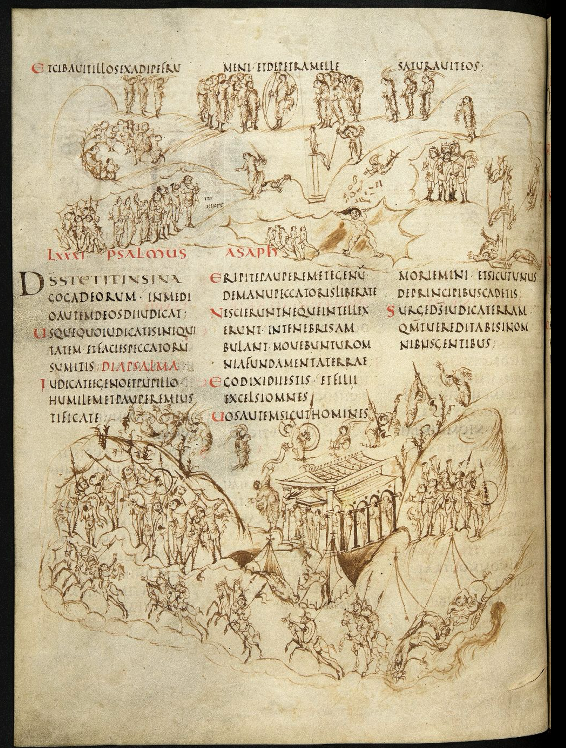 ETCIBAUITILLOSEXADIPEFRU MENI·ETDEPETRAMELLE SATURAUITEOS·
LXXXI PSALMUS ASAPH
DSSTETITINSINA
GOGADEORUM·INMEDI
OAUTEMDEOSDIIUDICAT;
USQUEQUOIUDICATISINIQUI
TATEM·ETFACIESPECCATORU
SUMITIS·DIAPSALMA
IUDICATEEGENOETPUPILLO·
HUMILEMETPAUPEREMIUS
TIFICATE
ERIPITEPAUPEREMETEGENU·
DEMANUPECCATORISLIBERATE
NESCIERUNTNEQUEINTELLEX
ERUNT·INTENEBRISAM
BULANT·MOUEBUNTUROM
NIAFUNDAMENTATERRAE
EGODIXIDIIESTIS·ETFILII
EXCELSIOMNES
UOSAUTEMSICUTHOMINES
MORIEMINI·ETSICUTUNUS
DEPRINCIPIBUSCADETIS;
SURGED̅SIUDICATERRAM·
QM̅TUEREDITABISINOM
NIBUSGENTIBUS;